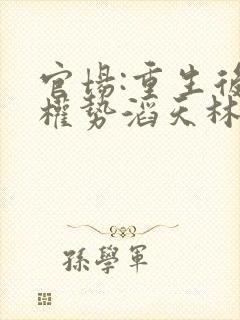 官場:重生後
權勢滔天林
孫學軍